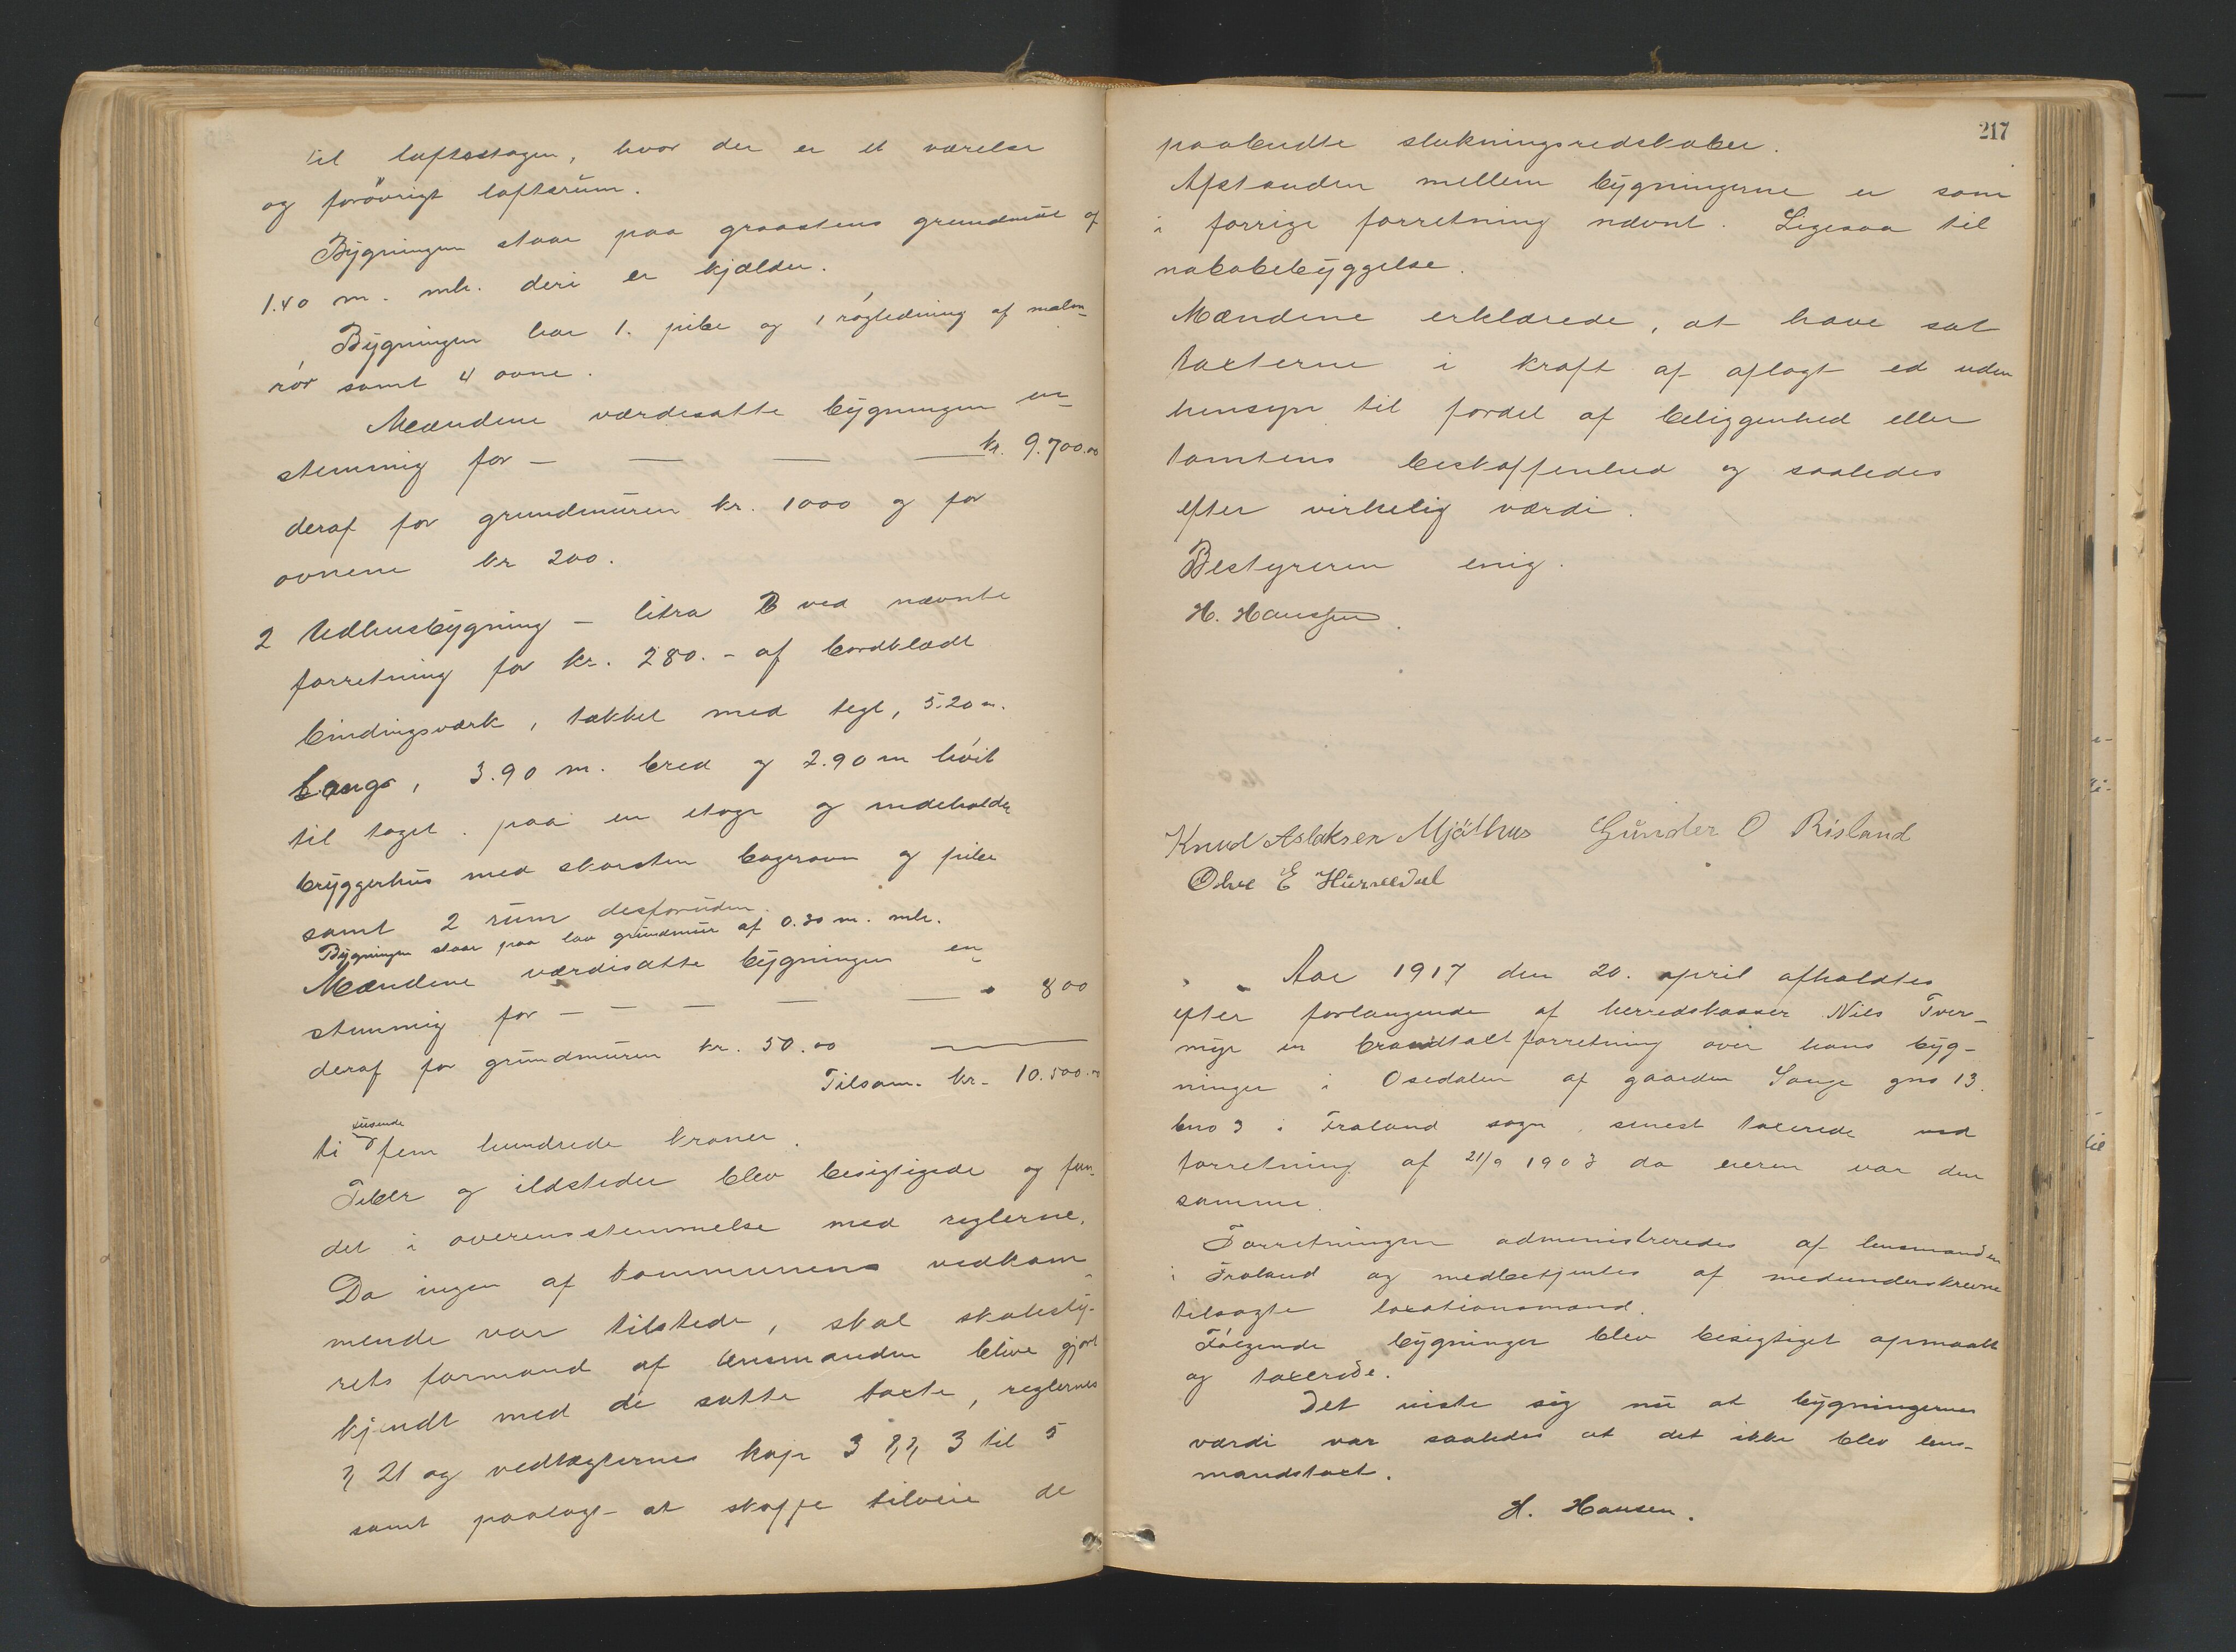 til loftsetagen, hvor der er et værelse
og forøvrigt loftsrum.
Bygningen staar paa graastens grundmur af
1.40 m. mh. deri er kjælder.
Bygningen har 1. pibe og 1 røgledning af malm-
rør samt 4 ovne.
Mændene værdisatte bygningen en-
stemmig for — — — — kr. 9.700.00
deraf for grundmuren kr. 1000 og for
ovnene kr 200.
2 Udhusbygning - litra B ved nævnte
forretning for kr. 280.- af bordklædt
bindingsværk, tækket med tegl, 5.20 m.
lang, 3.90 m. bred og 2.90 m høit
til taget. paa en etage og indeholder
bryggerhus med skorsten bagerovn og pibe
samt 2 rum desforuden.
Bygningen staar paa lav grundmur af 0.30 m. mh.
Mændene værdisatte bygningen en-
stemmig for — — — — " 800
deraf for grundmuren kr. 50.00
Tilsam. kr. 10.500.00
ti tusinde fem hundrede kroner.
Piber og ildsteder blev besigtigede og fun-
det i overensstemmelse med reglerne.
Da ingen af kommunens vedkom-
mende var tilstede, skal skatesty-
rets formand af lensmanden blive gjort
kjendt med de satte taxte, reglernes
§ 21 og vedtægternes kap 3 §§ 3 til 5
samt paalagt at skaffe tilveie de
217
paabudte slukningsredskaber.
Afstanden mellem bygningerne er som
i forrige forretning nævnt. Ligesaa til
nabobebyggelse.
Mændene erklærede, at have sat
taxterne i kraft af aflagt ed uden
hensyn til fordel af beliggenhed eller
tomtens beskaffenhed og saaledes
efter virkelig værdi.
Bestyreren enig.
H. Hansen.
Knud Aslaksen Mjølhus Gunder O Risland
Olve E Hurvedal
Aar 1917 den 20. april afholdtes
efter forlangende af herredskasser Nils Tver-
myr en brandtaktforretning over hans byg-
ninger i Osedalen af gaarden Sange gno 13.
bno 3 i Froland sogn, senest taxerede ved
forretning af 21/9 1903 da eieren var den
samme.
Forretningen administreredes af lensmanden
i Froland og medbetjentes af medunderskrevne
tilsagte taxationsmænd.
Følgende bygninger blev besigtiget opmaalt
og taxerede.
Det viste sig nu at bygningernes
værdi var saaledes at det ikke blev lens-
mandstaxt.
H. Hansen.